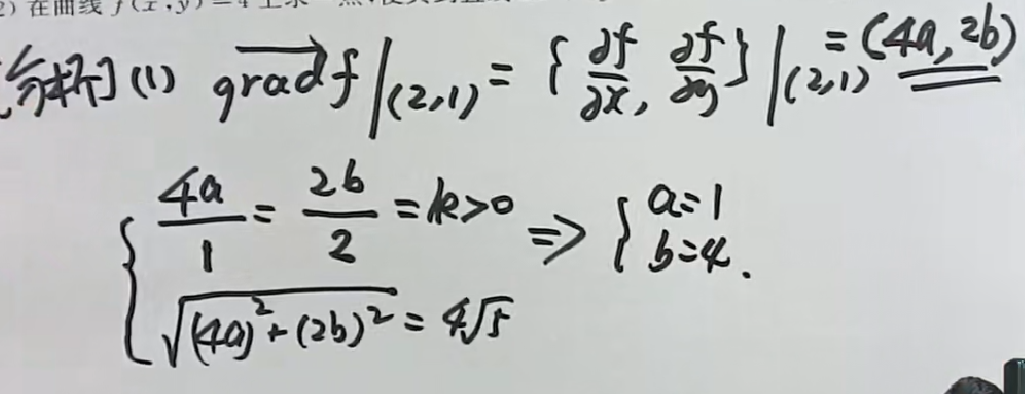 2) 在曲线 f(x,y)=4 上求一点,
分析 (1) grad f|(2,1) = {∂f/∂x, ∂f/∂y}|(2,1) = (4a, 2b)
{ 4a/1 = 2b/2 = k>0 ⇒ { a=1
b=4.
√((4a)²+(2b)²) = 4√5